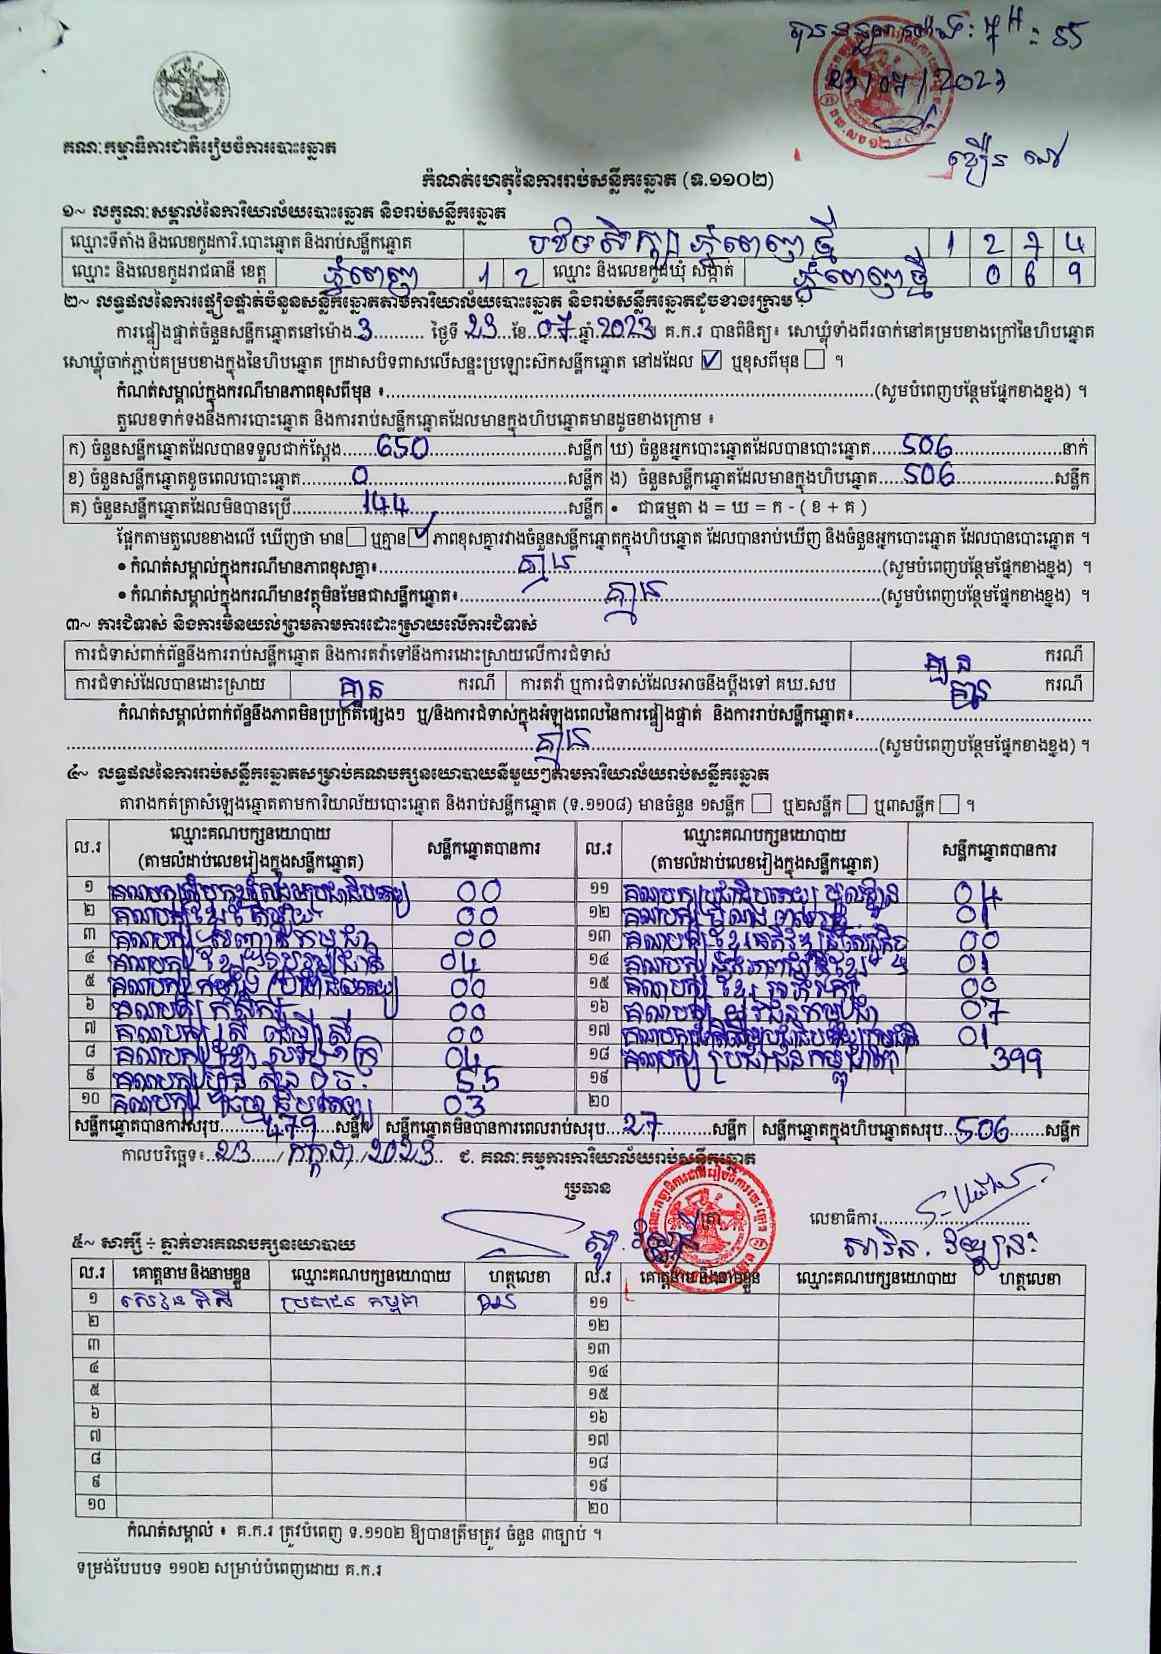 23/07/2023
គណៈកម្មាធិការជាតិរៀបចំការបោះឆ្នោត
កំណត់ហេតុនៃការរាប់សន្លឹកឆ្នោត (ទ.១១០២)
១~ លក្ខណៈសម្គាល់នៃការិយាល័យបោះឆ្នោត និងរាប់សន្លឹកឆ្នោត
ឈ្មោះទីតាំង និងលេខកូដការិ.បោះឆ្នោត និងរាប់សន្លឹកឆ្នោត ភ្នំពេញថ្មី 1 2 7 4
ឈ្មោះ និងលេខកូដរាជធានី ខេត្ត ភ្នំពេញ 1 2 ឈ្មោះ និងលេខកូដឃុំ សង្កាត់ ភ្នំពេញថ្មី 0 6 9
២~ លទ្ធផលនៃការផ្ទៀងផ្ទាត់ចំនួនសន្លឹកឆ្នោតតាមការិយាល័យបោះឆ្នោត និងរាប់សន្លឹកឆ្នោតដូចខាងក្រោម ៖
ការផ្ទៀងផ្ទាត់ចំនួនសន្លឹកឆ្នោតនៅម៉ោង 3 ថ្ងៃទី 23 ខែ 07 ឆ្នាំ 2023 គ.ក.រ បានពិនិត្យ៖ សោឃ្លុំទាំងពីរចាក់នៅគម្របខាងក្រៅនៃហិបឆ្នោត
សោឃ្លុំចាក់ភ្ជាប់គម្របខាងក្នុងនៃហិបឆ្នោត ក្រដាសបិទពាសលើសន្ទះប្រឡោះស៊កសន្លឹកឆ្នោត នៅដដែល ☑ ឬខុសពីមុន ☐ ។
កំណត់សម្គាល់ក្នុងករណីមានភាពខុសពីមុន ៖...(សូមបំពេញបន្ថែមផ្នែកខាងខ្នង) ។
តួលេខទាក់ទងនឹងការបោះឆ្នោត និងការរាប់សន្លឹកឆ្នោតដែលមានក្នុងហិបឆ្នោតមានដូចខាងក្រោម ៖
ក) ចំនួនសន្លឹកឆ្នោតដែលបានទទួលជាក់ស្តែង 650 សន្លឹក ឃ) ចំនួនអ្នកបោះឆ្នោតដែលបានបោះឆ្នោត 506 នាក់
ខ) ចំនួនសន្លឹកឆ្នោតខូចពេលបោះឆ្នោត 0 សន្លឹក ង) ចំនួនសន្លឹកឆ្នោតដែលមានក្នុងហិបឆ្នោត 506 សន្លឹក
គ) ចំនួនសន្លឹកឆ្នោតដែលមិនបានប្រើ 144 សន្លឹក • ជាធម្មតា ង = ឃ = ក - ( ខ + គ )
ផ្អែកតាមតួលេខខាងលើ ឃើញថា មាន ☐ ឬគ្មាន ☑ ភាពខុសគ្នារវាងចំនួនសន្លឹកឆ្នោតក្នុងហិបឆ្នោត ដែលបានរាប់ឃើញ និងចំនួនអ្នកបោះឆ្នោត ដែលបានបោះឆ្នោត ។
• កំណត់សម្គាល់ក្នុងករណីមានភាពខុសគ្នា៖ គ្មាន (សូមបំពេញបន្ថែមផ្នែកខាងខ្នង) ។
• កំណត់សម្គាល់ក្នុងករណីមានវត្ថុមិនមែនជាសន្លឹកឆ្នោត៖ គ្មាន (សូមបំពេញបន្ថែមផ្នែកខាងខ្នង) ។
៣~ ការជំទាស់ និងការមិនយល់ព្រមតាមការដោះស្រាយលើការជំទាស់
ការជំទាស់ពាក់ព័ន្ធនឹងការរាប់សន្លឹកឆ្នោត និងការតវ៉ាទៅនឹងការដោះស្រាយលើការជំទាស់ គ្មាន ករណី
ការជំទាស់ដែលបានដោះស្រាយ គ្មាន ករណី ការតវ៉ា ឬការជំទាស់ដែលអាចនឹងប្តឹងទៅ គឃ.សប គ្មាន ករណី
កំណត់សម្គាល់ពាក់ព័ន្ធនឹងភាពមិនប្រក្រតីផ្សេងៗ ឬ/និងការជំទាស់ក្នុងអំឡុងពេលនៃការផ្ទៀងផ្ទាត់ និងការរាប់សន្លឹកឆ្នោត៖
គ្មាន (សូមបំពេញបន្ថែមផ្នែកខាងខ្នង) ។
៤~ លទ្ធផលនៃការរាប់សន្លឹកឆ្នោតសម្រាប់គណបក្សនយោបាយនីមួយៗតាមការិយាល័យរាប់សន្លឹកឆ្នោត
តារាងកត់ត្រាសំឡេងឆ្នោតតាមការិយាល័យបោះឆ្នោត និងរាប់សន្លឹកឆ្នោត (ទ.១១០៨) មានចំនួន ១សន្លឹក ☐ ឬ២សន្លឹក ☐ ឬ៣សន្លឹក ☐ ។
ល.រ ឈ្មោះគណបក្សនយោបាយ (តាមលំដាប់លេខរៀងក្នុងសន្លឹកឆ្នោត) សន្លឹកឆ្នោតបានការ ល.រ ឈ្មោះគណបក្សនយោបាយ (តាមលំដាប់លេខរៀងក្នុងសន្លឹកឆ្នោត) សន្លឹកឆ្នោតបានការ
១ គណបក្ស 00 ១១ គណបក្សប្រជាធិបតេយ្យមូលដ្ឋាន 04
២ គណបក្សខ្មែរតែមួយ 00 ១២ គណបក្ស 01
៣ គណបក្សសញ្ជាតិកម្ពុជា 00 ១៣ គណបក្សខ្មែរ 00
៤ គណបក្សខ្មែររួបរួមជាតិ 04 ១៤ គណបក្ស 01
៥ គណបក្សកម្លាំងប្រជាធិបតេយ្យ 00 ១៥ គណបក្សខ្មែរអភិរក្ស 00
៦ គណបក្សកសិករ 00 ១៦ គណបក្សយុវជនកម្ពុជា 07
៧ គណបក្សស្រីដើម្បីស្រី 00 ១៧ គណបក្ស 01
៨ គណបក្ស 04 ១៨ គណបក្សប្រជាជនកម្ពុជា 399
៩ គណបក្សហ៊្វុនស៊ិនប៉ិច 55 ១៩
១០ គណបក្សធម្មាធិបតេយ្យ 03 ២០
សន្លឹកឆ្នោតបានការសរុប 479 សន្លឹក សន្លឹកឆ្នោតមិនបានការពេលរាប់សរុប 27 សន្លឹក សន្លឹកឆ្នោតក្នុងហិបឆ្នោតសរុប 506 សន្លឹក
កាលបរិច្ឆេទ៖ 23 / កក្កដា / 2023 ជ. គណៈកម្មការការិយាល័យរាប់សន្លឹកឆ្នោត
ប្រធាន
ត្រា លេខាធិការ
៥~ សាក្សី ÷ ភ្នាក់ងារគណបក្សនយោបាយ
ល.រ គោត្តនាម និងនាមខ្លួន ឈ្មោះគណបក្សនយោបាយ ហត្ថលេខា ល.រ គោត្តនាម និងនាមខ្លួន ឈ្មោះគណបក្សនយោបាយ ហត្ថលេខា
១ ប្រជាជនកម្ពុជា ១១
២ ១២
៣ ១៣
៤ ១៤
៥ ១៥
៦ ១៦
៧ ១៧
៨ ១៨
៩ ១៩
១០ ២០
កំណត់សម្គាល់ ៖ គ.ក.រ ត្រូវបំពេញ ទ.១១០២ ឱ្យបានត្រឹមត្រូវ ចំនួន ៣ច្បាប់ ។
ទម្រង់បែបបទ ១១០២ សម្រាប់បំពេញដោយ គ.ក.រ